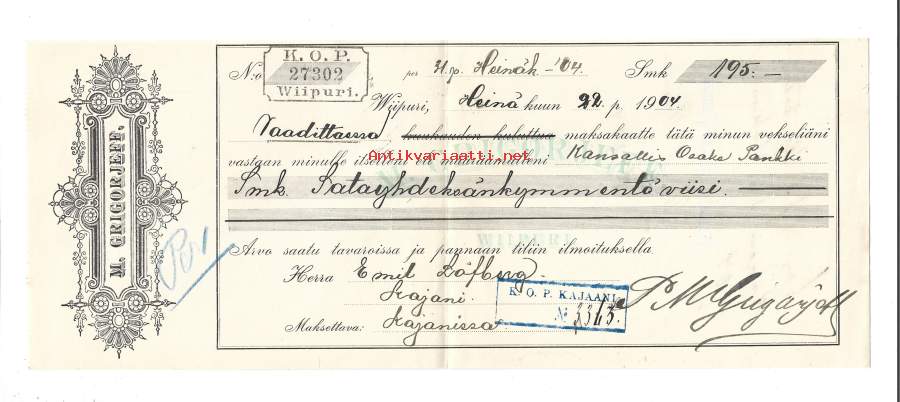 M. GRIGORJEFF.
K. O. P.
27302
Wiipuri.
N:o per 31 p. Heinäk - '04. Smk 195.—
Wiipuri, Heinä kuun 22. p. 1904.
Vaadittaessa kuukauden kuluttua maksakaatte tätä minun vekseliäni
vastaan minulle itselleni eli määräämälleni Kansallis Osake Pankki
Antikvariaatti.net
Smk. Satayhdeksänkymmentä viisi.
WIIPURI
Arvo saatu tavaroissa ja pannaan tiliin ilmoituksella.
Herra Emil Löfberg.
Kajani.
Maksettava: Kajanissa.
K. O. P. KAJAANI
№ 3313.
P. M Grigorjeff